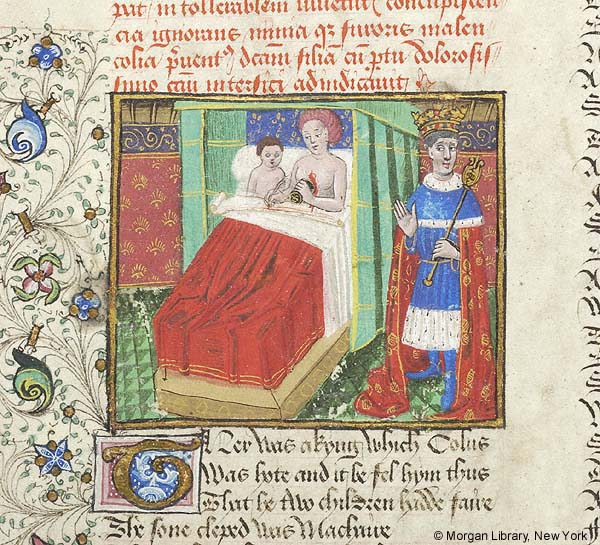 pat, in tollerablem iuuetut᷒ concupiscen
cia ignorans nimia qꝫ furoris malen
colia p̄uentꝰ dc̄am filiā cū ptu dolorosis
simo casu interfici adiudicauit
Ther was a kyng which Eolus
Was hote and it be fel hym thus
That he two children hadde faire
The sone cleped was Machaire
© Morgan Library, New York